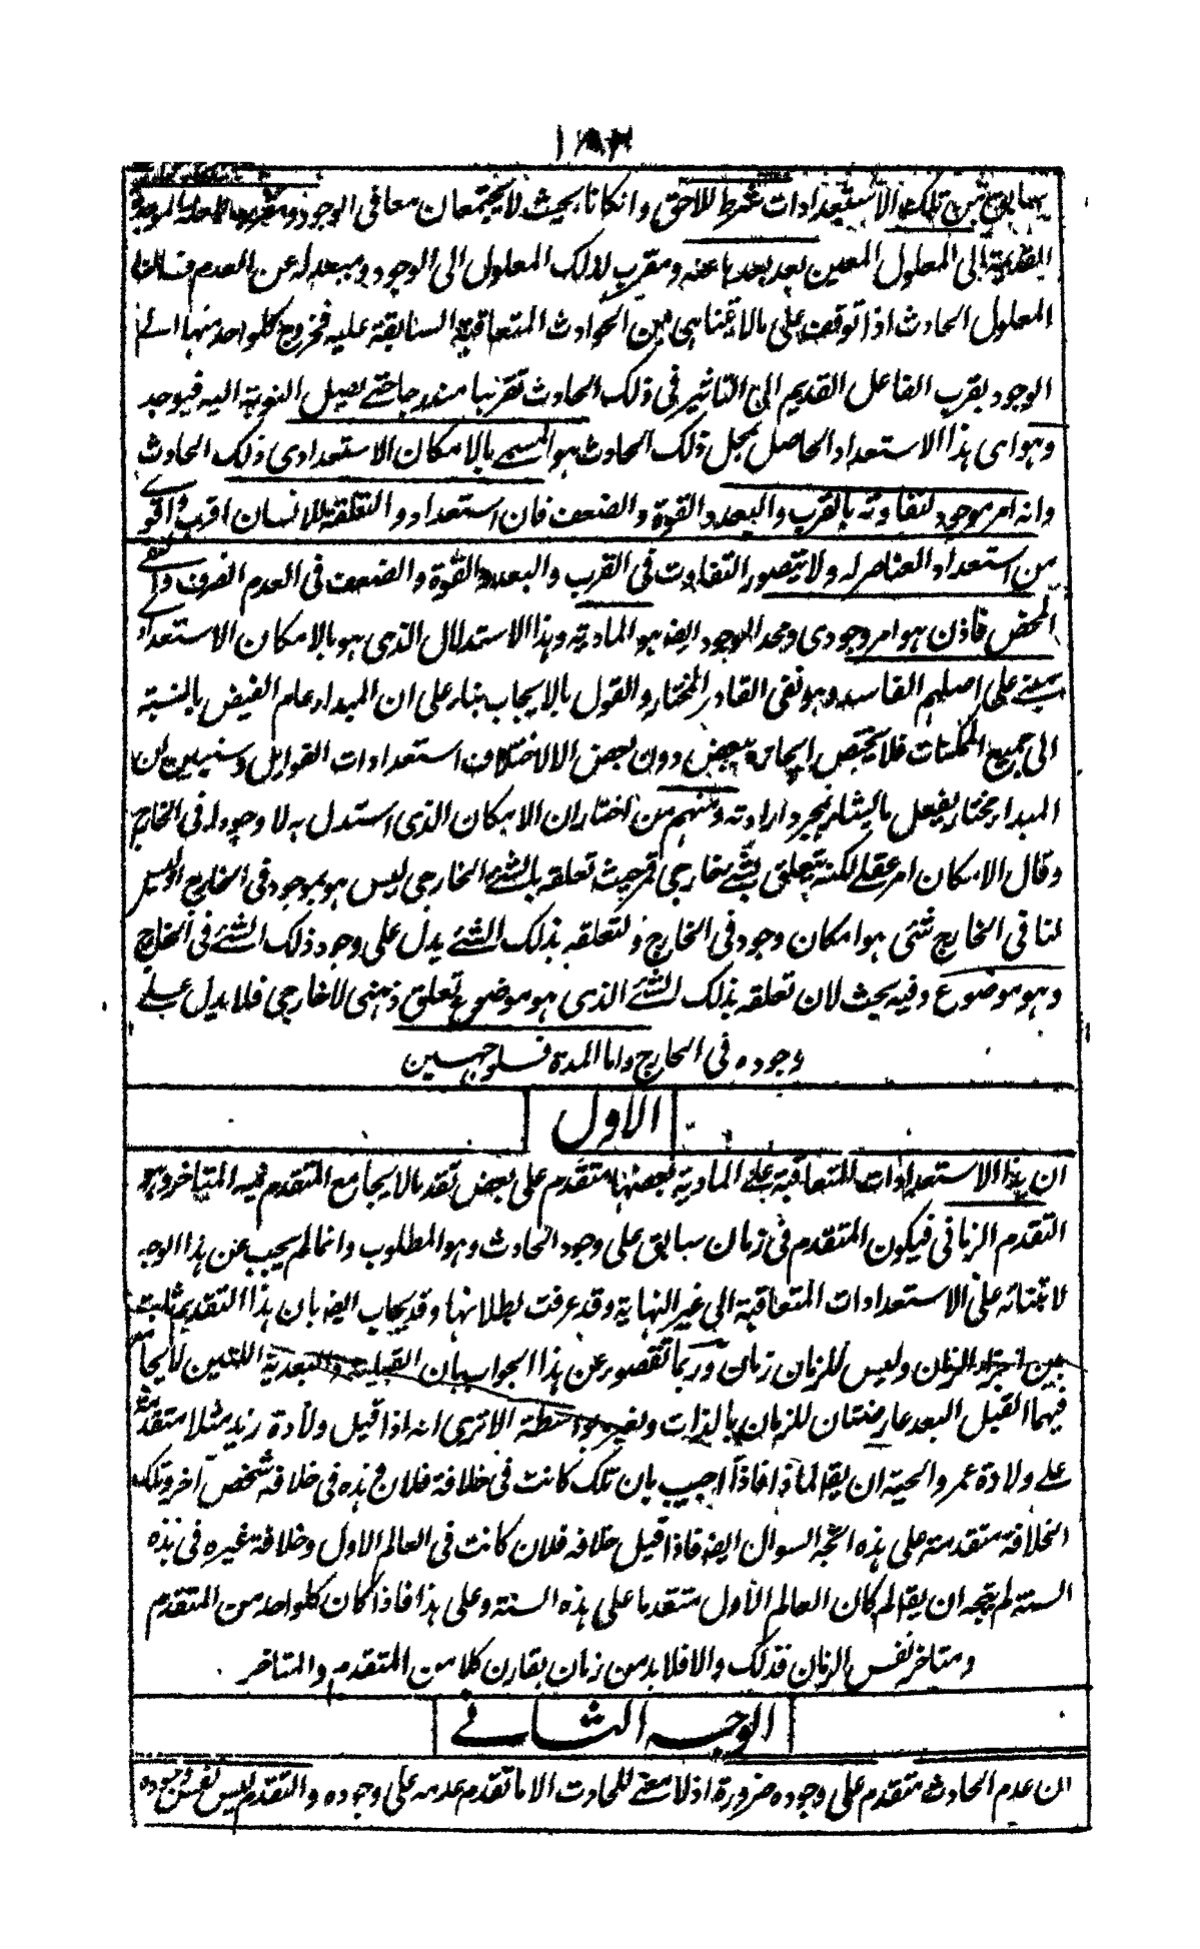 ١٨٣
سابق من تلك الاستعدادات شرط للاحق وان كانا بحيث لا يجتمعان معا فى الوجود ومقرب للعلة الموجدة
القديمة الى المعلول المعين بعد بعدها عنه ومقرب لذلك المعلول الى الوجود ومبعد له عن العدم فان
المعلول الحادث اذا توقف على مالا يتناهى من الحوادث المتعاقبة السابقة عليه فخروج كلواحد منها الے
الوجود يقرب الفاعل القديم الى التاثير فى ذلك الحادث تقريبا مندرجا حتے يصل النوبة اليه فيوجد
وهو اى هذا الاستعداد الحاصل لمحل ذلك الحادث هو المسمے بالامكان الاستعدادى ذلك الحادث
وانه امر موجود لتفاوته بالقرب والبعد والقوة والضعف فان استعداد النطفة للانسان اقرب واقوے
من استعداد العناصر له ولا يتصور التفاوت فى القرب والبعد والقوة والضعف فى العدم الصرف والنفے
المحض فاذن هو امر وجودى ومحله الموجود ايضا هو المادية وهذا الاستدلال الذى هو بالامكان الاستعداد
يبنے على اصلهم الفاسد وهو نفى القادر المختار والقول بالايجاب بناء على ان المبداء عام الفيض بالنسبة
الى جميع الممكنات فلا يختص ايجاده ببعض دون بعض الا لاختلاف استعدادات القوابل وسنبين ان
المبداء مختار يفعل ما يشاء بمجرد ارادته ومنهم من اختار ان الامكان الذى استدل به لا وجود له فى الخارج
وقال الامكان امر عقلے لكنه يتعلق بشئے خارجى فمن حيث تعلقه بالشئے الخارجى ليس هو بموجود فى الخارج اذ ليس
لنا فى الخارج شئى هو امكان وجود فى الخارج ولتعلقه بذلك الشئے يدل على وجود ذلك الشئے فى الخارج
وهو موضوع وفيه بحث لان تعلقه بذلك الشئے الذى هو موضوع تعلق ذهنى لا خارجى فلا يدل علے
وجوده فى الخارج واما المدة فلوجهين
الاول
ان هذا الاستعدادات المتعاقبة علے المادية بعضها متقدم على بعض تقدما لا يجامع المتقدم فيه المتاخر وهو
التقدم الزمانى فيكون المتقدم فى زمان سابق على وجود الحادث وهو المطلوب وانما لم يجب عن هذا الوجه
لابتنائه على الاستعدادات المتعاقبة الى غير النهاية وقد عرفت بطلانها وقد يجاب ايضا بان هذا التقدم ثابت
بين اجزاء الزمان وليس للزمان زمان وربما تقصور عن هذا الجواب بان القبلية والبعدية اللتين لا يجامع
فيهما القبل البعد عارضتان للزمان بالذات ولغيره بواسطة الا ترى انه اذا قيل ولادة زيد مثلا متقدمة
علے ولادة عمرو اتجه ان يقال لماذا فاذا اجيب بان تلك كانت فى خلافة فلان وهذه فى خلافة شخص آخر وتلك
الخلافة متقدمة على هذه اتجه السوال ايضا فاذا قيل خلافة فلان كانت فى العالم الاول وخلافة غيره فى هذه
السنة لم يتجه ان يقال لم كان العالم الاول متقدما على هذه السنة وعلى هذا فاذا كان كلواحد من المتقدم
ومتاخر نفس الزمان فذلك والا فلا بد من زمان يقارن كلا من المتقدم والمتاخر
الوجه الثانے
ان عدم الحادث متقدم على وجوده ضرورة اذ لا معنے للحادث الا ما تقدم عدمه على وجوده والتقدم ليس نفس وجوده